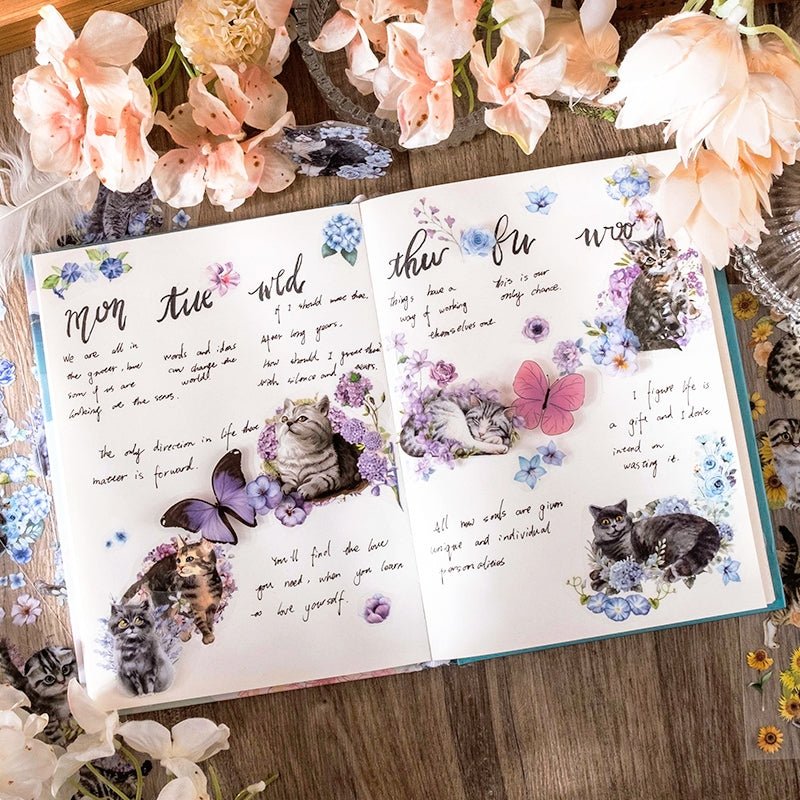 mon tue wed
We are all in
the gutter, but
som of us are
looking at the stars.
words and ideas
can change the
world!
If I should meet thee,
After long years,
How should I greet thee
With silence and tears.
the only direction in life that
matter is forward.
You'll find the love
you need, when you learn
to love yourself.
thur fu woo
Things have a
way of working
themselves one.
this is our
only chance.
I figure life is
a gift and I don't
intend on
wasting it.
All new souls are given
unique and individual
personalities